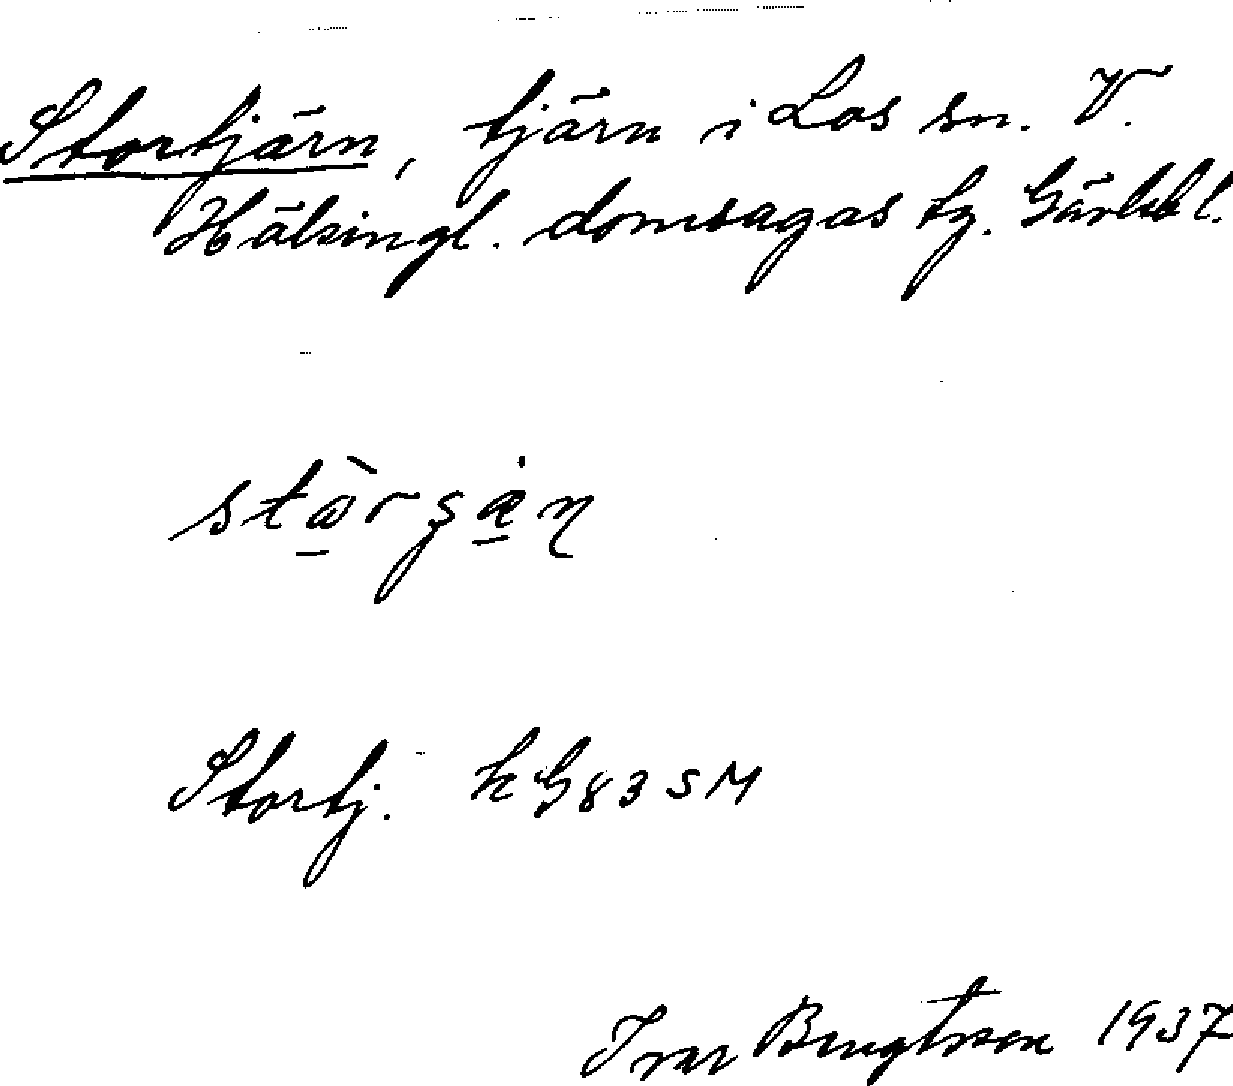 Stortjärn, tjärn i Los sn. V.
Hälsingl. domsagas tg. Gävlebl.
Stortj. kG83SM
Ivar Bengtsson 1937